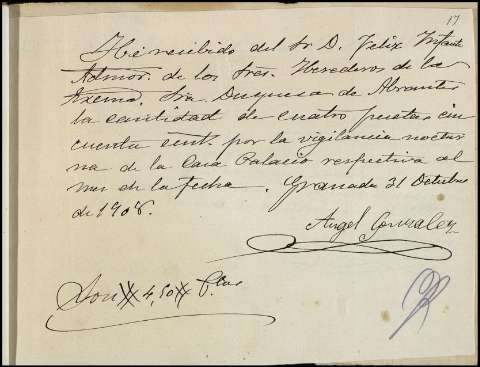 17
He recibido del Sr D. Felix Infante
Admor. de los Sres. Herederos de la
Excma. Sra Duquesa de Abrantes
la cantidad de cuatro pesetas cin
cuenta cent. por la vigilancia noctur
na de la Casa Palacio respectiva al
mes de la fecha. Granada 31 Octubre
de 1908.
Angel Gonzalez
Son # 4,50 # Ptas